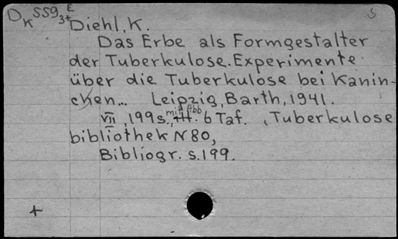 Dk 559 3+ E 5
Diehl, K.
Das Erbe als Formgestalter
der Tuberkulose. Experimente
über die Tuberkulose bei Kanin-
chen... Leipzig, Barth, 1941.
VII, 199s., mit Abb. 6 Taf. (Tuberkulose
bibliothek N 80,
Bibliogr. s. 199.
+